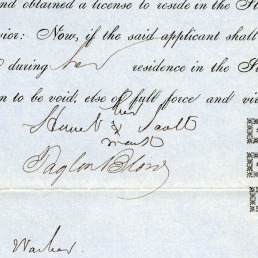 and obtained a license to reside in the St
vior: Now, if the said applicant shall
during her residence in the St
n to be void, else of full force and vi
her
X
mark
Taylor Blow